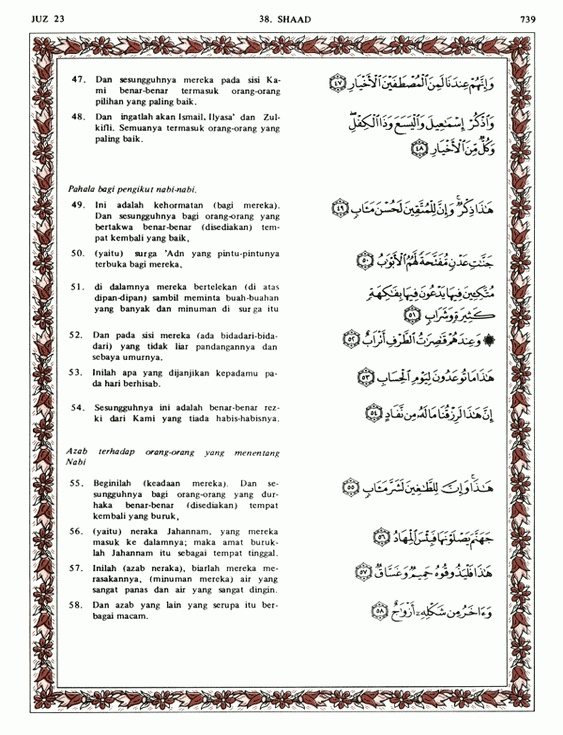 JUZ 23 38. SHAAD 739
47. Dan sesungguhnya mereka pada sisi Ka-
mi benar-benar termasuk orang-orang
pilihan yang paling baik.
وَإِنَّهُمْ عِندَنَا لَمِنَ ٱلْمُصْطَفَيْنَ ٱلْأَخْيَارِ ٤٧
48. Dan ingatlah akan Ismail, Ilyasa' dan Zul-
kifli. Semuanya termasuk orang-orang yang
paling baik.
وَٱذْكُرْ إِسْمَٰعِيلَ وَٱلْيَسَعَ وَذَا ٱلْكِفْلِ ۖ
وَكُلٌّ مِّنَ ٱلْأَخْيَارِ ٤٨
Pahala bagi pengikut nabi-nabi.
49. Ini adalah kehormatan (bagi mereka).
Dan sesungguhnya bagi orang-orang yang
bertakwa benar-benar (disediakan) tem-
pat kembali yang baik,
هَٰذَا ذِكْرٌ ۚ وَإِنَّ لِلْمُتَّقِينَ لَحُسْنَ مَـَٔابٍ ٤٩
50. (yaitu) surga 'Adn yang pintu-pintunya
terbuka bagi mereka,
جَنَّٰتِ عَدْنٍ مُّفَتَّحَةً لَّهُمُ ٱلْأَبْوَٰبُ ٥٠
51. di dalamnya mereka bertelekan (di atas
dipan-dipan) sambil meminta buah-buahan
yang banyak dan minuman di surga itu
مُتَّكِـِٔينَ فِيهَا يَدْعُونَ فِيهَا بِفَٰكِهَةٍ
كَثِيرَةٍ وَشَرَابٍ ٥١
52. Dan pada sisi mereka (ada bidadari-bida-
dari) yang tidak liar pandangannya dan
sebaya umurnya.
۞ وَعِندَهُمْ قَٰصِرَٰتُ ٱلطَّرْفِ أَتْرَابٌ ٥٢
53. Inilah apa yang dijanjikan kepadamu pa-
da hari berhisab.
هَٰذَا مَا تُوعَدُونَ لِيَوْمِ ٱلْحِسَابِ ٥٣
54. Sesungguhnya ini adalah benar-benar rez-
ki dari Kami yang tiada habis-habisnya.
إِنَّ هَٰذَا لَرِزْقُنَا مَا لَهُۥ مِن نَّفَادٍ ٥٤
Azab terhadap orang-orang yang menentang
Nabi
55. Beginilah (keadaan mereka). Dan se-
sungguhnya bagi orang-orang yang dur-
haka benar-benar (disediakan) tempat
kembali yang buruk,
هَٰذَا ۚ وَإِنَّ لِلطَّٰغِينَ لَشَرَّ مَـَٔابٍ ٥٥
56. (yaitu) neraka Jahannam, yang mereka
masuk ke dalamnya; maka amat buruk-
lah Jahannam itu sebagai tempat tinggal.
جَهَنَّمَ يَصْلَوْنَهَا فَبِئْسَ ٱلْمِهَادُ ٥٦
57. Inilah (azab neraka), biarlah mereka me-
rasakannya, (minuman mereka) air yang
sangat panas dan air yang sangat dingin.
هَٰذَا فَلْيَذُوقُوهُ حَمِيمٌ وَغَسَّاقٌ ٥٧
58. Dan azab yang lain yang serupa itu ber-
bagai macam.
وَءَاخَرُ مِن شَكْلِهِۦٓ أَزْوَٰجٌ ٥٨